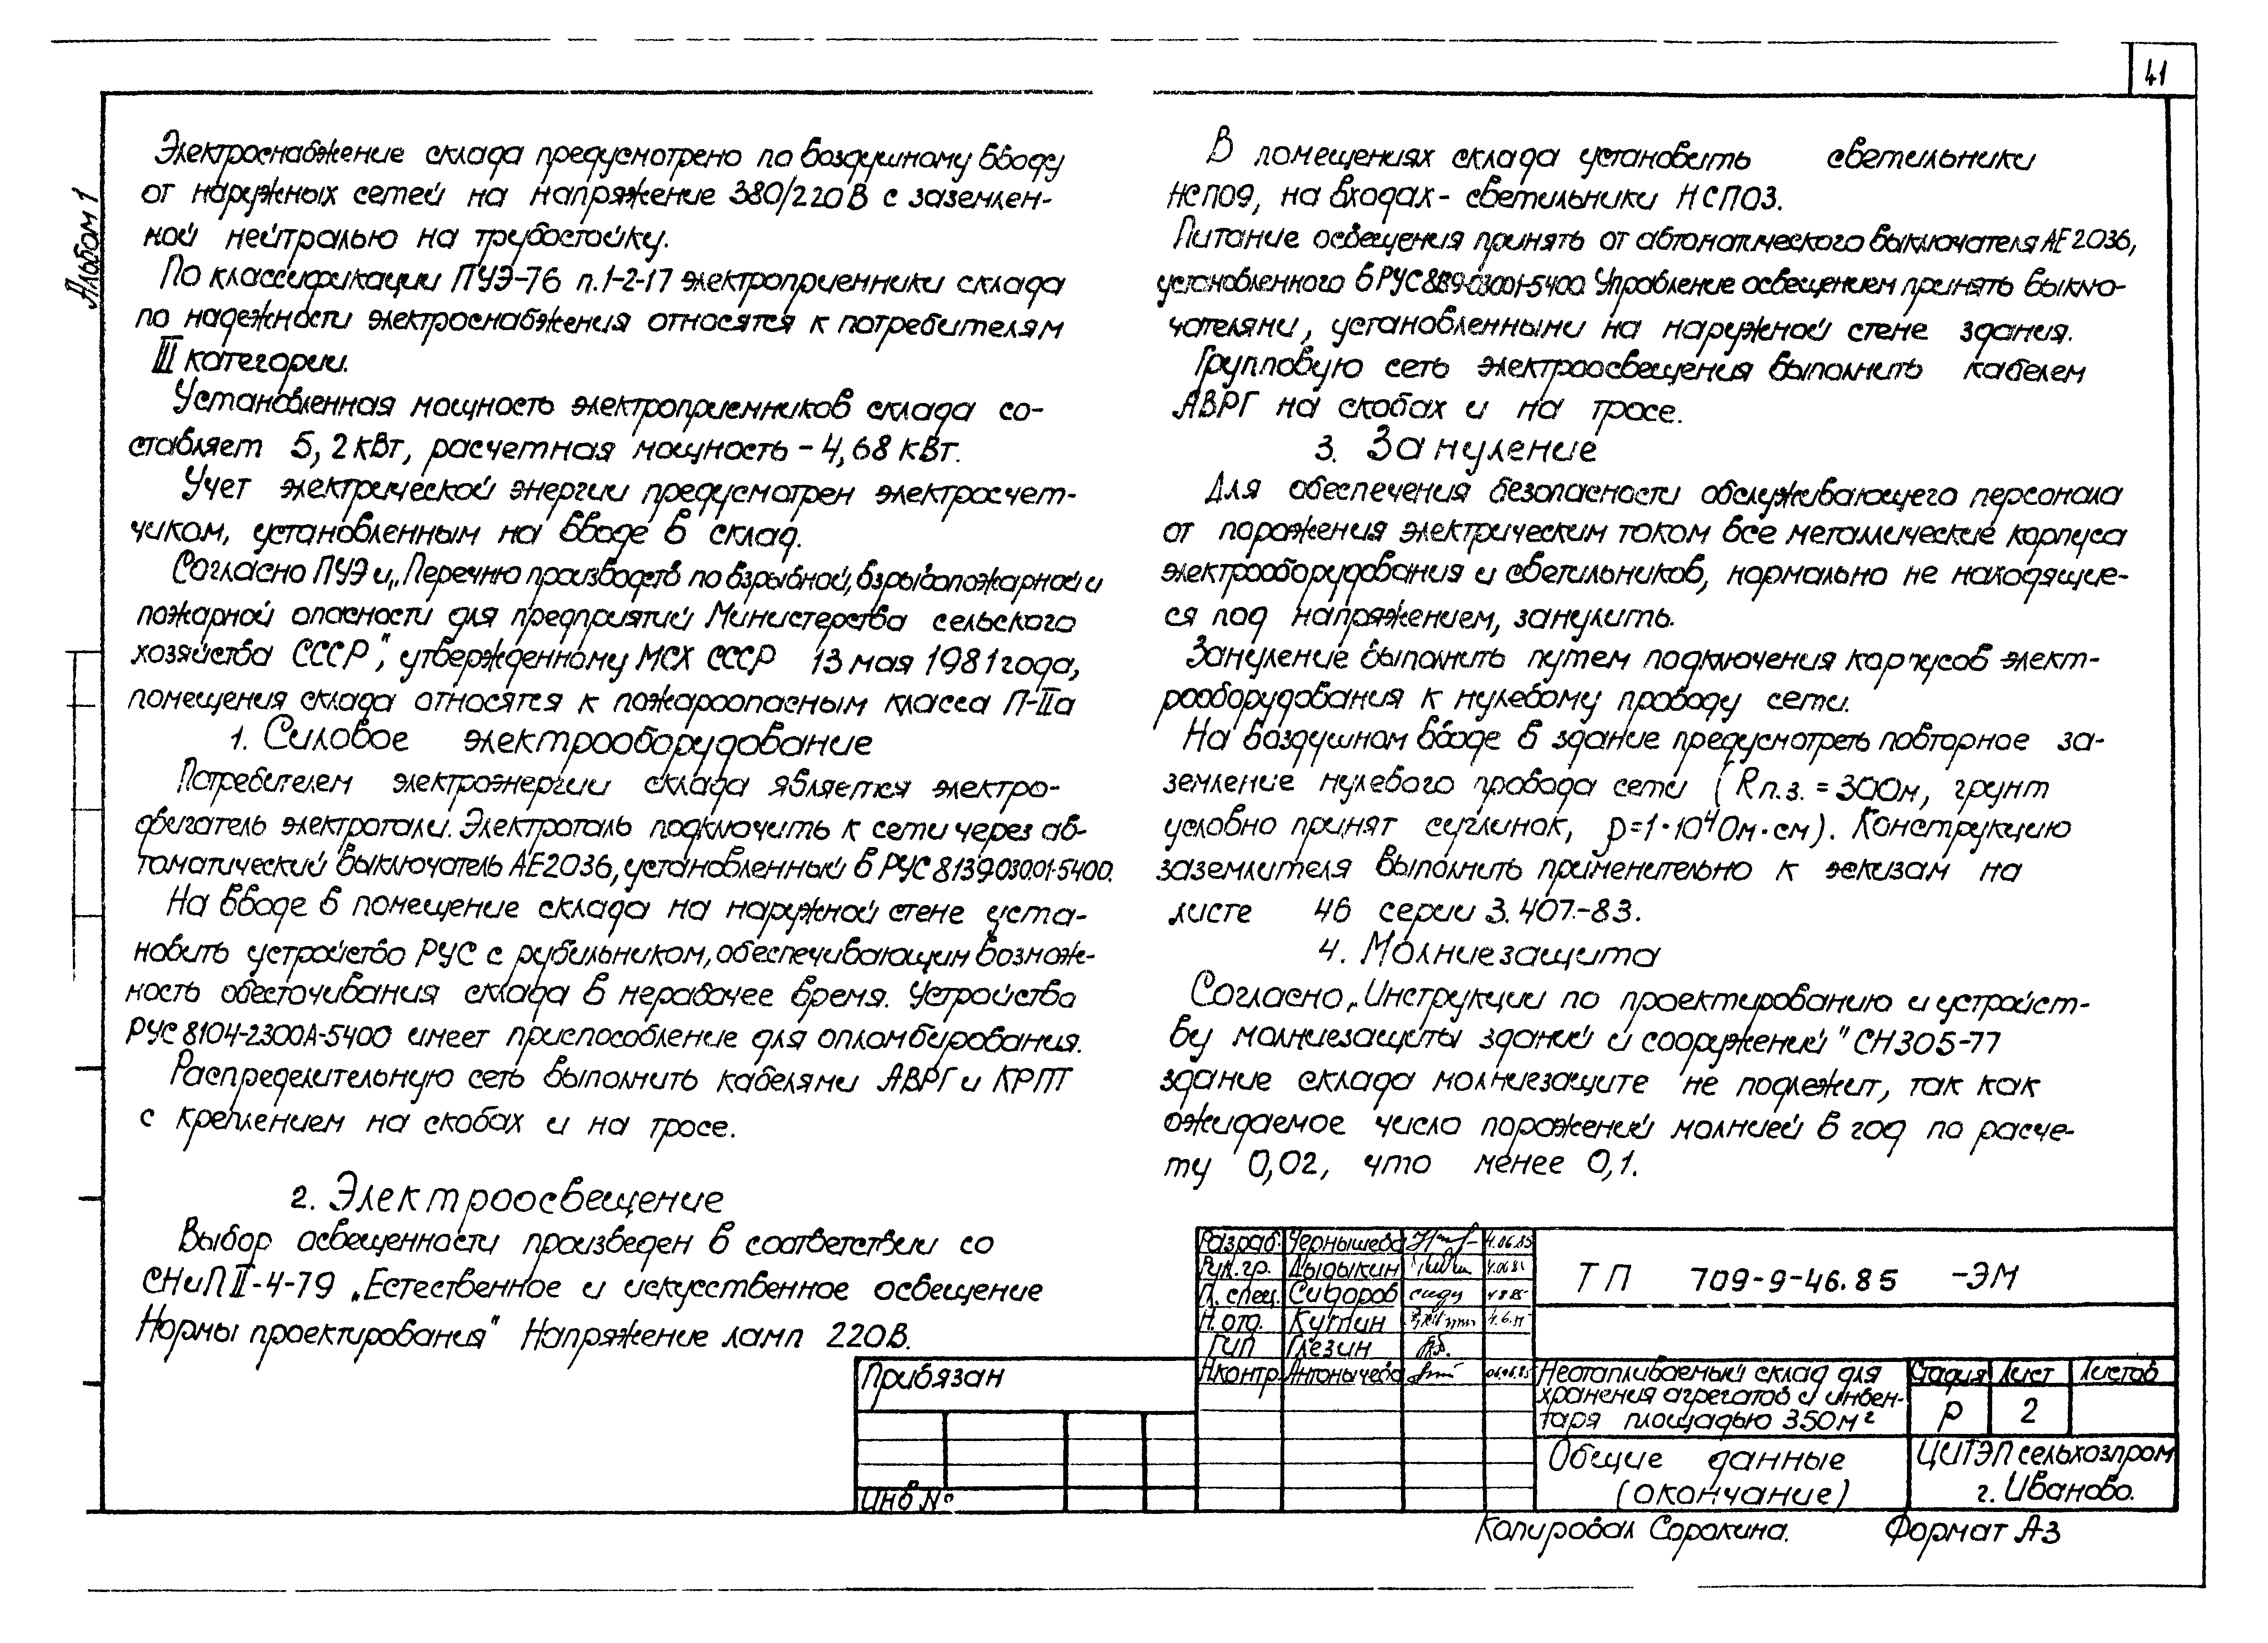 41
Альбом 1
Электроснабжение склада предусмотрено по воздушному вводу
от наружных сетей на напряжение 380/220В с заземлен-
ной нейтралью на трубостойку.
По классификации ПУЭ-76 п.1-2-17 электроприемники склада
по надежности электроснабжения относятся к потребителям
III категории.
Установленная мощность электроприемников склада со-
ставляет 5,2 кВт, расчетная мощность - 4,68 кВт.
Учет электрической энергии предусмотрен электросчет-
чиком, установленным на вводе в склад.
Согласно ПУЭ и „Перечню производств по взрывной, взрывопожарной и
пожарной опасности для предприятий Министерства сельского
хозяйства СССР", утвержденному МСХ СССР 13 мая 1981 года,
помещения склада относятся к пожароопасным класса П-IIа
1. Силовое электрооборудование
Потребителем электроэнергии склада является электро-
двигатель электротали. Электроталь подключить к сети через ав-
томатический выключатель АЕ2036, установленный в РУС 8139-03001-5400.
На вводе в помещение склада на наружной стене уста-
новить устройство РУС с рубильником, обеспечивающим возмож-
ность обесточивания склада в нерабочее время. Устройство
РУС 8104-2300А-5400 имеет приспособление для опломбирования.
Распределительную сеть выполнить кабелями АВРГ и КРПТ
с креплением на скобах и на тросе.
2. Электроосвещение
Выбор освещенности произведен в соответствии со
СНиП II-4-79 „Естественное и искусственное освещение
Нормы проектирования" Напряжение ламп 220В.
В помещениях склада установить светильники
НСП09, на входах - светильники НСП03.
Питание освещения принять от автоматического выключателя АЕ2036,
установленного в РУС Управление освещением принять выклю-
чателями, установленными на наружной стене здания.
Групповую сеть электроосвещения выполнить кабелем
АВРГ на скобах и на тросе.
3. Зануление
Для обеспечения безопасности обслуживающего персонала
от поражения электрическим током все металлические корпуса
электрооборудования и светильников, нормально не находящие-
ся под напряжением, занулить.
Зануление выполнить путем подключения корпусов элект-
рооборудования к нулевому проводу сети.
На воздушном вводе в здание предусмотреть повторное за-
земление нулевого провода сети (Rп.з. = 30Ом, грунт
условно принят суглинок, ρ=1·10⁴Ом·см). Конструкцию
заземлителя выполнить применительно к эскизам на
листе 46 серии 3.407-83.
4. Молниезащита
Согласно „Инструкции по проектированию и устройст-
ву молниезащиты зданий и сооружений" СН305-77
здание склада молниезащите не подлежит, так как
ожидаемое число поражений молнией в год по расче-
ту 0,02, что менее 0,1.
Разраб. Чернышева 4.06.85
Рук. гр. Дыдыкин
Гл. спец. Сидоров
Н. отд. Кутлин
ГИП Глезин
Н.контр. Антонычева 06.06.85
ТП 709-9-46.85 -ЭМ
Неотапливаемый склад для
хранения агрегатов и инвен-
таря площадью 350 м²
Стадия Лист Листов
Р 2
Общие данные
(окончание)
ЦИТЭПсельхозпром
г. Иваново.
Привязан
Инв №
Копировал Сорокина. Формат А3